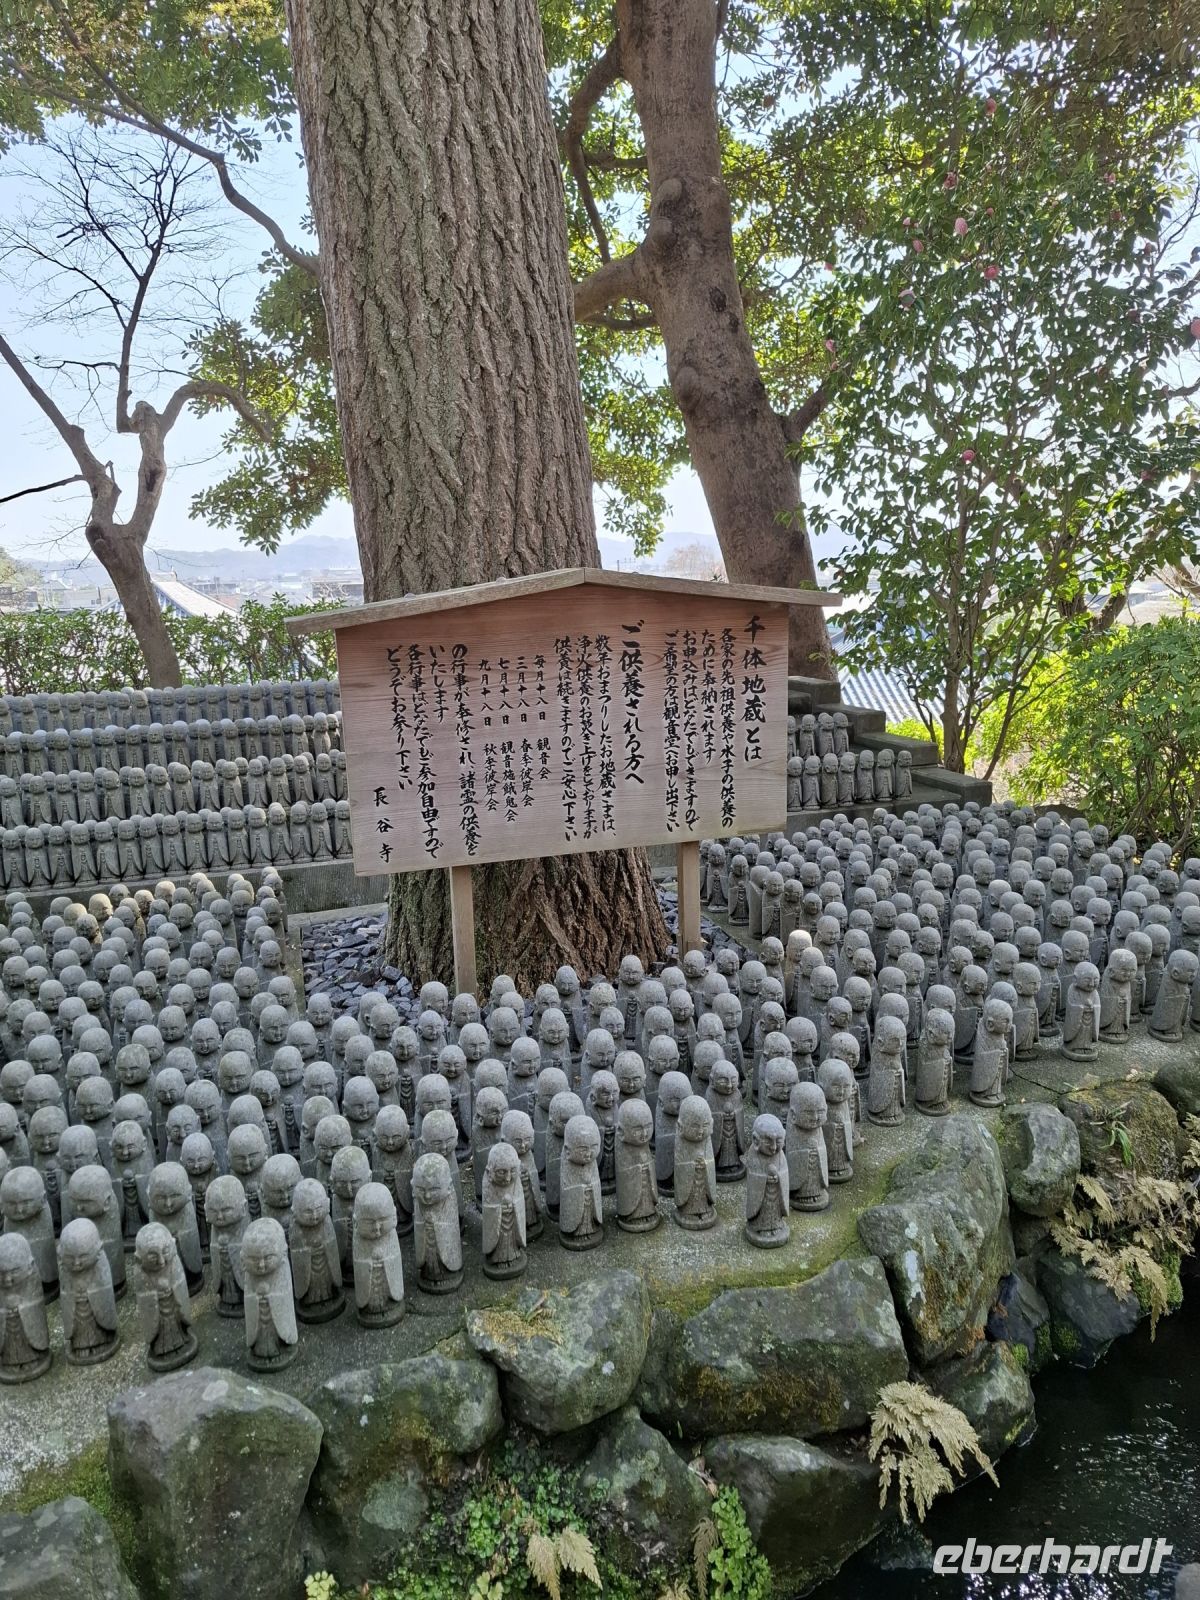 千体地蔵とは
各家の先祖供養や水子の供養の
ために奉納されます
お申込みはどなたでもできますので
ご希望の方は観音堂へお申し出下さい
ご供養される方へ
数年おまつりしたお地蔵さまは、
浄火供養のお焚き上げをしておりますが
供養は続きますのでご安心下さい
毎月十八日 観音会
三月十八日 春季彼岸会
七月十八日 観音施餓鬼会
九月十八日 秋季彼岸会
の行事が奉修され、諸霊の供養を
いたします
各行事はどなたでもご参加自由ですので
どうぞお参り下さい
長谷寺
eberhardt